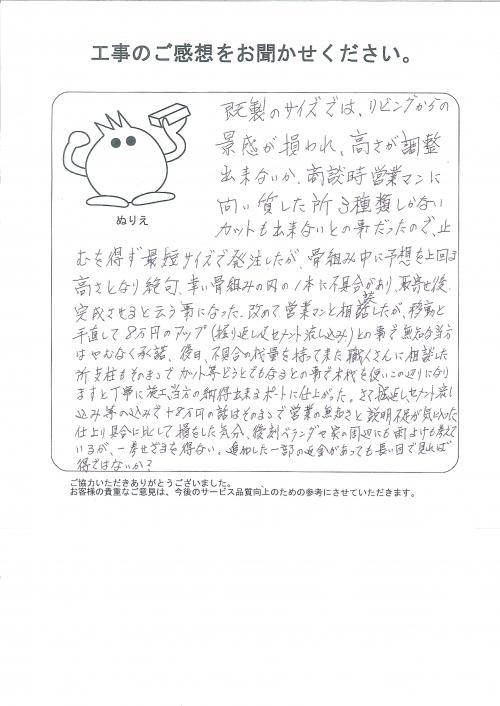 工事のご感想をお聞かせください。
既製のサイズでは、リビングからの
景感が損われ、高さが調整
出来ないか、商談時営業マンに
問い質した所3種類しかない
カットも出来ないとの事だったので、止
ぬりえ
むを得ず最短サイズで発注したが、骨組み中に予想を上回る
高さとなり絶句、幸い骨組みの内の1本に不具合があり、取寄せ後
完成させると云う事になった。改めて営業マンと相談したが、移動と
手直しで8万円のアップ(掘り返してセメント流し込み)との事で無知な当方
はやむなく承諾、後日、不具合の代量を持って来た職人さんに相談した
所支柱もそのままでカット等どうとでもなるとの事で木代を使いこの辺りになり
ますと丁寧に施工当方の納得出来るポートに仕上がった。さて掘返しセメント流し
込み等の込みで+8万円の話はそのままで営業の無知さと説明不足が気に入った
仕上り具合に比して損をした気分、後刻ベランダや家の周辺にも雨よけも考えて
いるが、一考せざるを得ない。追加した一部の返金があっても長い目で見れば
得ではないか?
ご協力いただきありがとうございました。
お客様の貴重なご意見は、今後のサービス品質向上のための参考にさせていただきます。